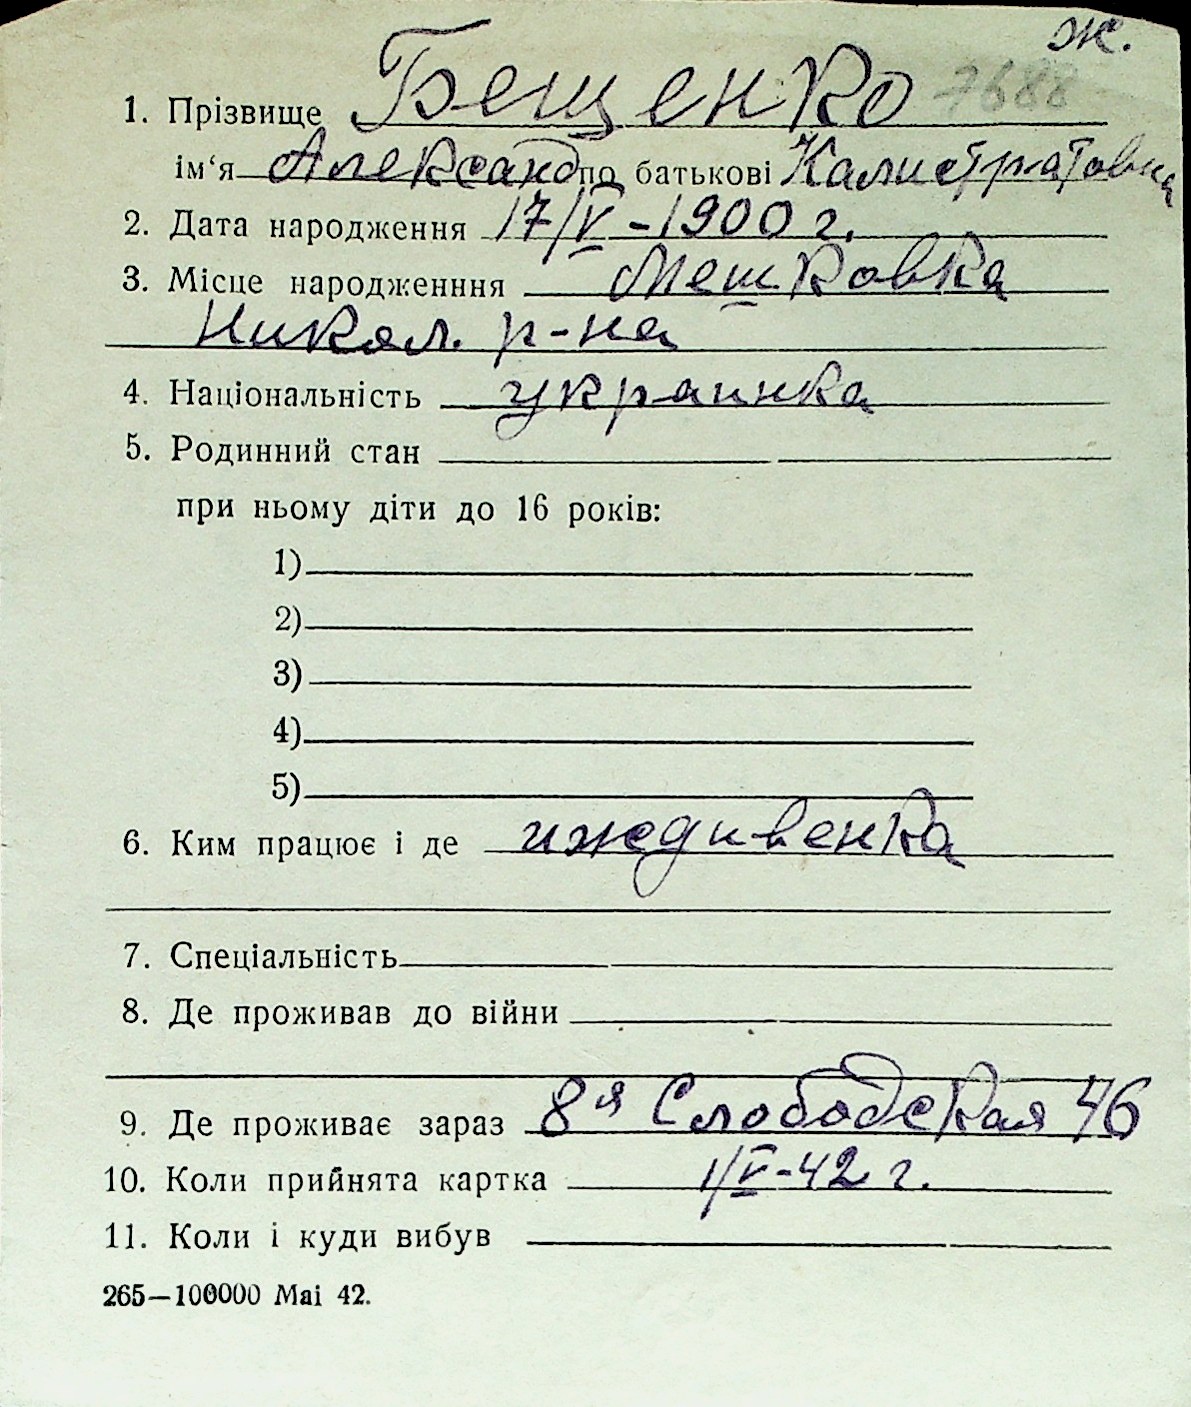 ж.
1. Прізвище Бещенко 7688
ім‘я Александ по батькові Калистратовна
2. Дата народження 17/V-1900 г.
3. Місце народженння Мешковка
Никол. р-на
4. Національність украинка
5. Родинний стан
при ньому діти до 16 років:
1)
2)
3)
4)
5)
6. Ким працює і де иждивенка
7. Спеціальність
8. Де проживав до війни
9. Де проживає зараз 8я Слободская 46
10. Коли прийнята картка 1/V-42 г.
11. Коли і куди вибув
265—100000 Mai 42.